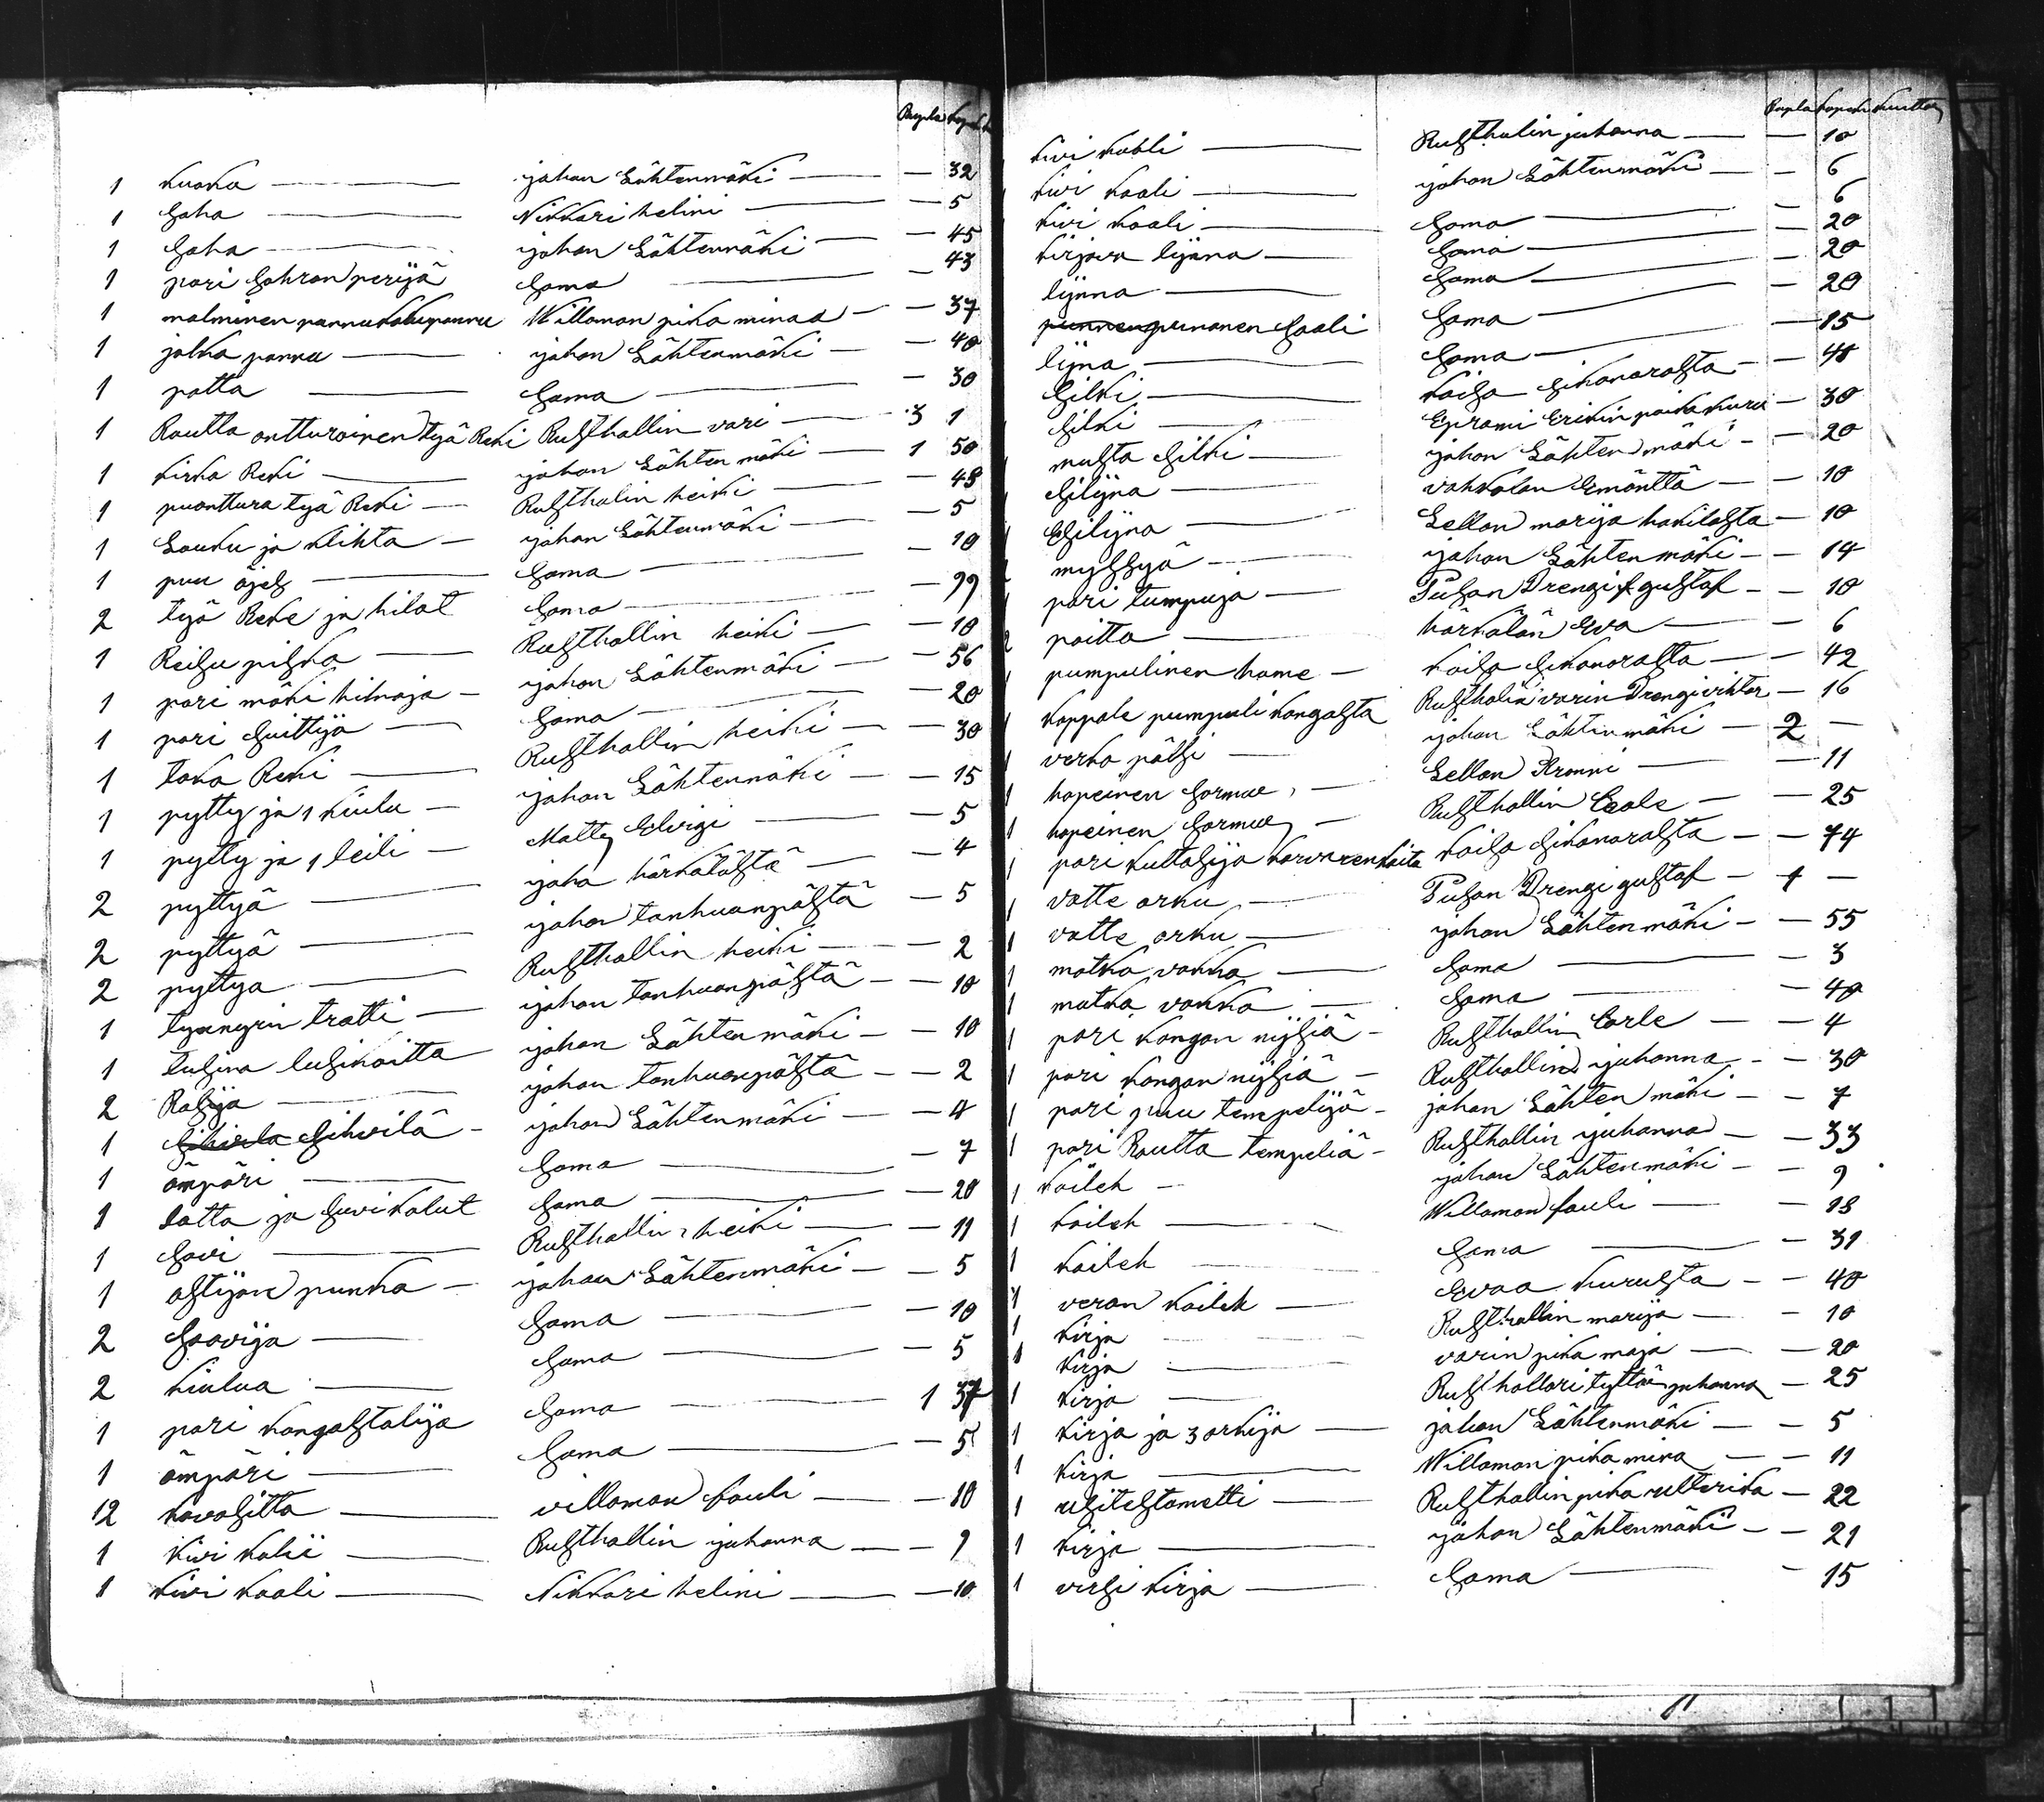 Rupla Kopek
1 kuoka johan Sähtenmäki 32
1 Saha Nikkari helini 5
1 Saha johan Sähtenmäki 45
1 pari Sahran perijä Sama 43
1 malminen pannu kahupannu Willaman pika minaa 37
1 jalka pannu johan Sähtenmäki 40
1 patta Sama 30
1 Rautta antturoinen työ Reki Rusthallin vari 3 1
1 kirka Reki johan Sähtenmäki 1 50
1 puanttura työ Reki Rusthalin heiki 48
1 Louku ja klihta johan Sähtenmäki 5
1 puu äjes Sama 10
2 työ Reke ja hilat Sama 99
1 Reisu piska Rusthallin heiki 10
1 pari mäki hilnoja johan Sähtenmäki 56
1 pari Suittija Sama 20
1 taka Reki Rusthallin heiki 30
1 pytty ja 1 kiulu johan Sähtenmäki 15
1 pytty ja 1 leili Matty Elvigi 5
2 pyttyä joha härkälästä 4
2 pyttyä johan tanhuanpästä 5
2 pyttya Rusthallin heiki 2
1 tynnyrin tratti johan tanhuanpästä 10
1 tusina lusikoitta johan Sähtenmäki 10
2 Rasija johan tanhuanpästä 2
1 Sihvilä johan Sähtenmäki 4
1 ämpäri Sama 7
1 Satta ja Suvikalut Sama 20
1 Savi Rusthallin heiki 11
1 astijan punka johan Sähtenmäki 5
2 Saavija Sama 10
2 kiulua Sama 5
1 pari kangastalija Sama 1 37
1 ämpäri Sama 5
12 kavasitta villaman fauli 10
1 kivi kalii Rusthallin juhanna 9
1 kivi kaali Nikkari helini 10
Rupla kopek kuittan
kivi kahli Rusthalin juhanna 10
kivi kaali johan Sähtenmäki 6
kivi kaali Sama 6
kirjava lijnna Sama 20
lijnna Sama 20
punanen Saali Sama 20
lijna Sama 15
Silki kaisa Sikavarasta 41
Silki Eprami Erikin poika kuru 30
musta Silki johan Sähtenmäki 20
Silijna vahkolan Emäntä 10
Silijna Sellan marija hakilasta 10
myssyä johan Sähtenmäki 14
pari tumpuja Pusan Drengi gustaf 10
2 paitta härkälän Eva 6
1 pumpulinen hame kaisa Sikavarasta 42
1 kappale pumpuli kangasta Rusthalin varin Drengi vihtor 16
1 verka pätsi johan Sähtenmäki 2
1 hapeinen Sormue Sellan Kronni 11
1 hopeinen Sormus Rusthallin Caale 25
1 pari kultasija korvarenkaita kaisa Sikavarasta 74
1 vatte arku Pusan Drengi gustaf 1
1 vatte arku johan Sähtenmäki 55
1 matka vakka Sama 3
1 matka vakka Sama 40
1 pari kangan nijsiä Rusthallin Carle 4
1 pari kangan nijsiä Rusthallin juhanna 30
1 pari puu tempelijä johan Sähtenmäki 7
1 pari Rautta tempeliä Rusthallin juhanna 33
1 käilek johan Sähtenmäki 9
1 kailek Willaman fauli 18
1 kailek Sama 31
1 veran kailek Evaa kurusta 40
1 kirja Rusthallin marija 10
1 kirja varin pika maja 20
1 kirja Rusthallari tyttär juhanna 25
1 kirja ja 3 arkija johan Sähtenmäki 5
1 kirja Willaman pika mina 11
1 usitestametti Rusthallin pika ulterika 22
1 kirja johan Sähtenmäki 21
1 virsi kirja Sama 15
11